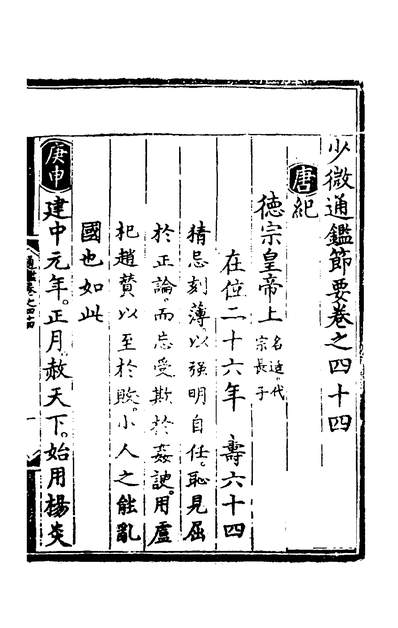 少微通鑑節要卷之四十四
唐紀
德宗皇帝上名适代宗長子
在位二十六年　壽六十四
猜忌刻薄以强明自任。恥見屈
於正論。而忘受欺於姦諛。用盧
杞趙賛以至於敗。小人之能亂
國也如此
庚申建中元年。正月赦天下。始用楊炎
通鑑卷之四十四